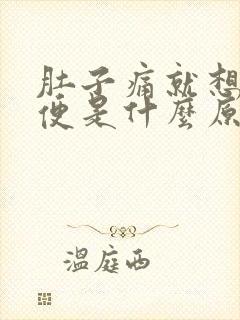 肚子痛就想
便是什麼原
溫庭西